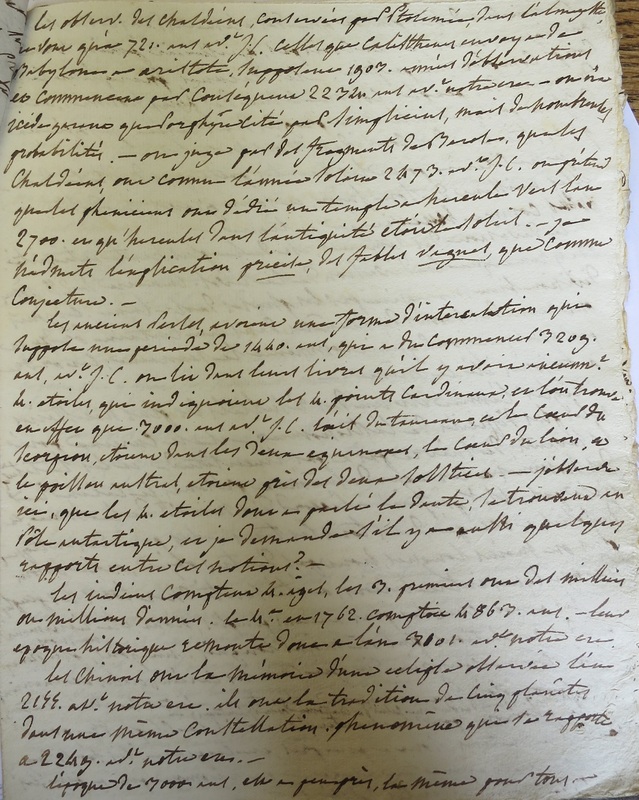 les observ. des chaldéens, conservées par Ptolemée dans l'almageste
ne vont qu'à 721. ans av.t J.C. celles que Calisthene envoya de
Babylone a aristote, supposent 1903. années d'observations
et commencent par conséquent 2234. ans av.t notre ere - on n'a
que porphyre cité par Simplicius, mais de nombreuses
probabilités. - on juge par des fragments de Berose, que les
Chaldéens, ont connu l'année solaire 2473. av.t J.C. on prétend
que les phéniciens ont dédié un temple a hercule vers l'an
2700. et qu'hercule dans l'antiquité étoit le soleil. - je
n'admets l'explication précise, des fables vagues, que comme
Conjecture. -
les anciens Perses, avoient une forme d'intercalation qui
suppose une periode de 1440. ans, qui a du commencer 3209.
ans, av.t J.C. on lit dans leurs livres qu'il y avoit anciennm.t
4. etoiles, qui indiquoient les 4. points Cardinaux, et l'on trouve
en effet que 3000. ans av.t J.C. l'œil du taureau, et le Cœur du
Scorpion, étoient dans les deux equinoxes, le Cœur du lion, et
le poisson austral, etoient près des deux solstices - j'observe
ici, que les 4. etoiles dont a parlé le Dante, se trouvent au
Pôle antarctique, et je demande s'il y a aussi quelques
rapports entre ces notions ? -
les indiens Comptent 4. ages, les 3. premiers ont des milliers
ou millions d'années. le 4.e en 1762. comptoit 4863. ans. - leur
epoque historique remonte donc a l'an 3001. av.t notre ere.
les Chinois ont la mémoire d'une eclipse observée l'an
2155. av.t notre ere. ils ont la tradition de cinq planètes
dans une même Constellation. phenomène que se rapporte
a 2449. av.t notre ere. -
l'époque de 3000 ans, est a peu près, la même pour tous -